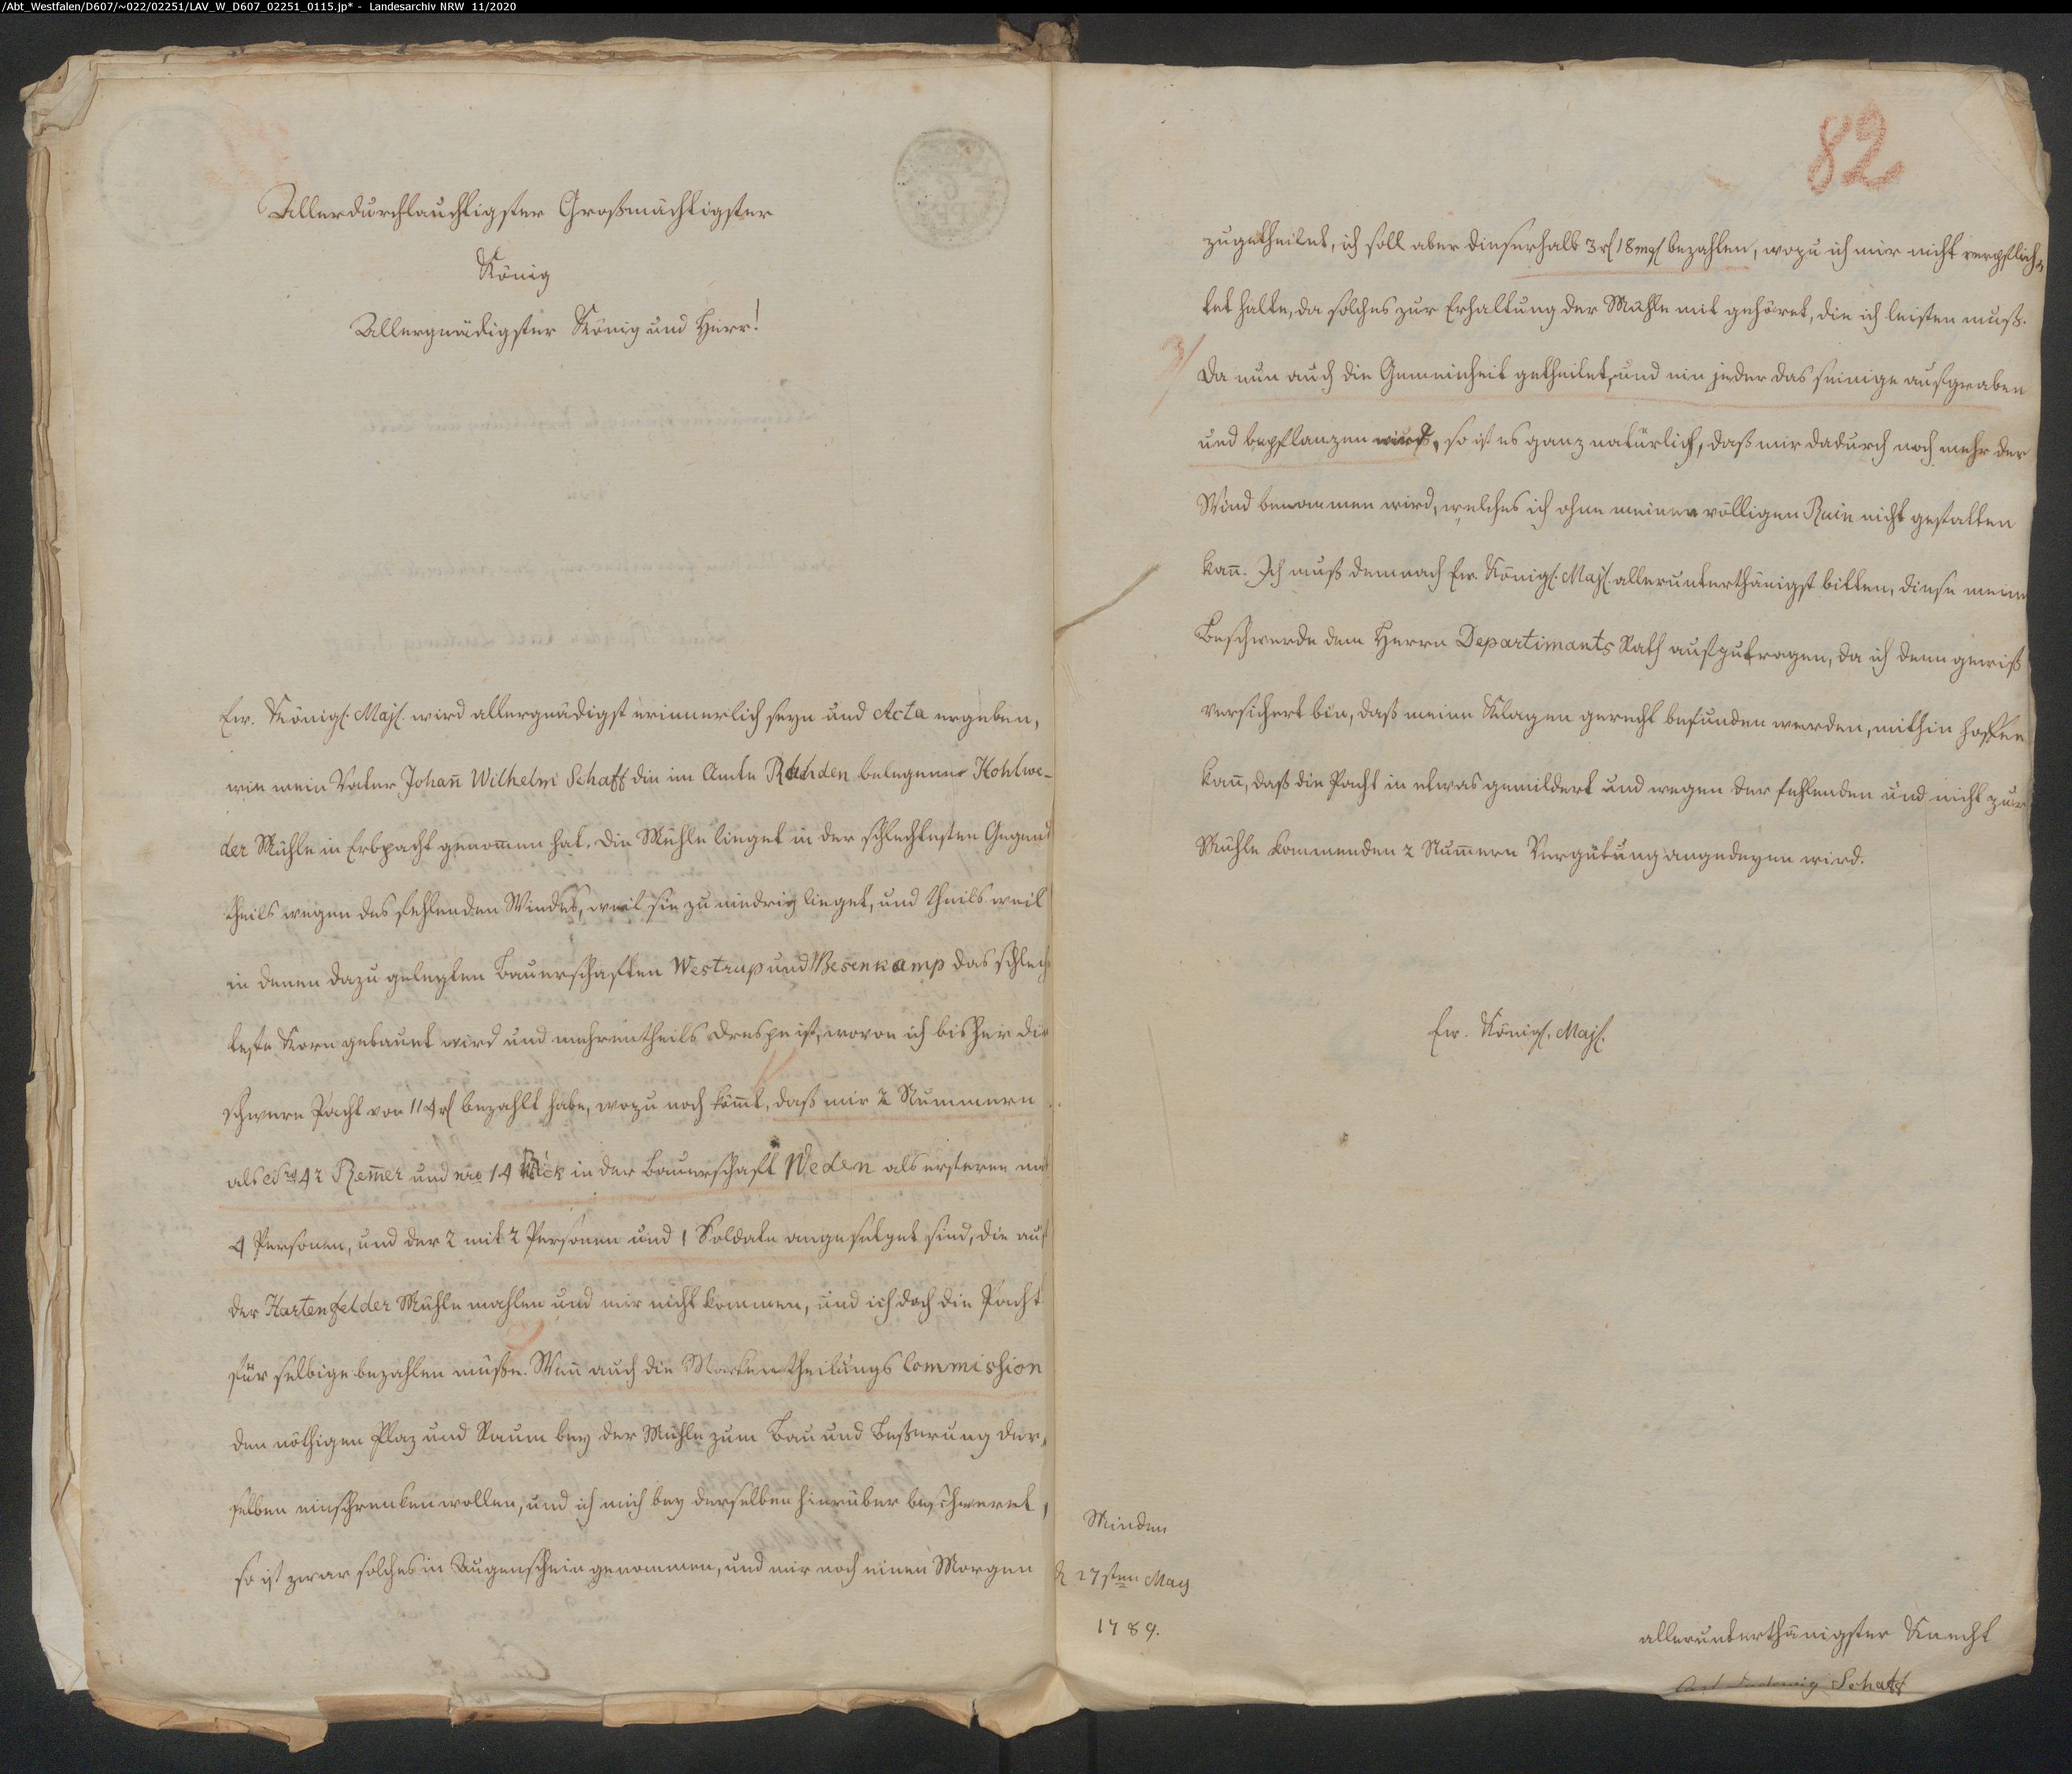 /Abt_Westfalen/D607/~022/02251/LAV_W_D607_02251_0115.jp* - Landesarchiv NRW 11/2020
Allerdurchlauchtigster Großmächtigster
König
Allergnädigster König und Herr!
Ew. Königl. Majt. wird allergnädigst erinnerlich seyn und Acta ergeben,
wie mein Vater Johañ Wilhelm Schaff die im Amte Rahden belegene Kohlwe-
der Mühle in Erbpacht genom̅en hat. Die Mühle lieget in der schlechtesten Gegend
theils wegen des fehlenden Windes, weil sie zu niedrig lieget, und theils weil
in denen dazu gelegten Bauerschaften Westrup und Wesenkamp das schlech
teste Korn gebauet wird und mehrentheils Drespe ist, wovon ich bisher die
schwere Pacht von 114 rl bezahlt habe, wozu noch köm̅t, daß mir 2 Nummern
als Nro 42 Rem̅er und nro 14 in der Bauerschaft Weden als ersterer mit
4 Personen, und der 2 mit 2 Personen und 1 Soldate angesetzet sind, die auf
der Hartenfelder Mühle mahlen und mir nicht kommen, und ich doch die Pacht
für selbige bezahlen müße. Wen̅ auch die Markentheilungs Commission
den nöthigen Plaz und Raum bey der Mühle zum Bau und Beßerung der,
selben einschrenken wollen, und ich mich bey derselben hierüber beschweret,
so ist zwar solches in Augenschein genommen, und mir noch einen Morgen
82
zugetheilet, ich soll aber dieserhalb 3 rl 18 mgl bezahlen, wozu ich mir nicht verpflich,
tet halte, da solches zur Erhaltung der Mühle mit gehöret, die ich leisten muß.
3/
Da nun auch die Gemeinheit getheilet, und ein jeder das seinige aufgraben
und bepflanzen wird, so ist es ganz natürlich, daß mir dadurch noch mehr der
Wind benommen wird, welches ich ohne meinen völligen Ruin nicht gestatten
kan̅. Ich muß demnach Ew. Königl. Majt. allerunterthänigst bitten, diese meine
Beschwerde dem Herrn Departimants Rath aufzutragen, da ich denn gewiß
versichert bin, daß meine Klagen gerecht befunden werden, mithin hoffen
kan̅, daß die Pacht in etwas gemildert und wegen der fehlenden und nicht zur
Mühle kommenden 2 Num̅ern Vergütung angedeyen wird.
Ew. Königl. Majt.
Minden
d 27sten May
1789.
allerunterthänigster Knecht
Carl Ludewig Schaff